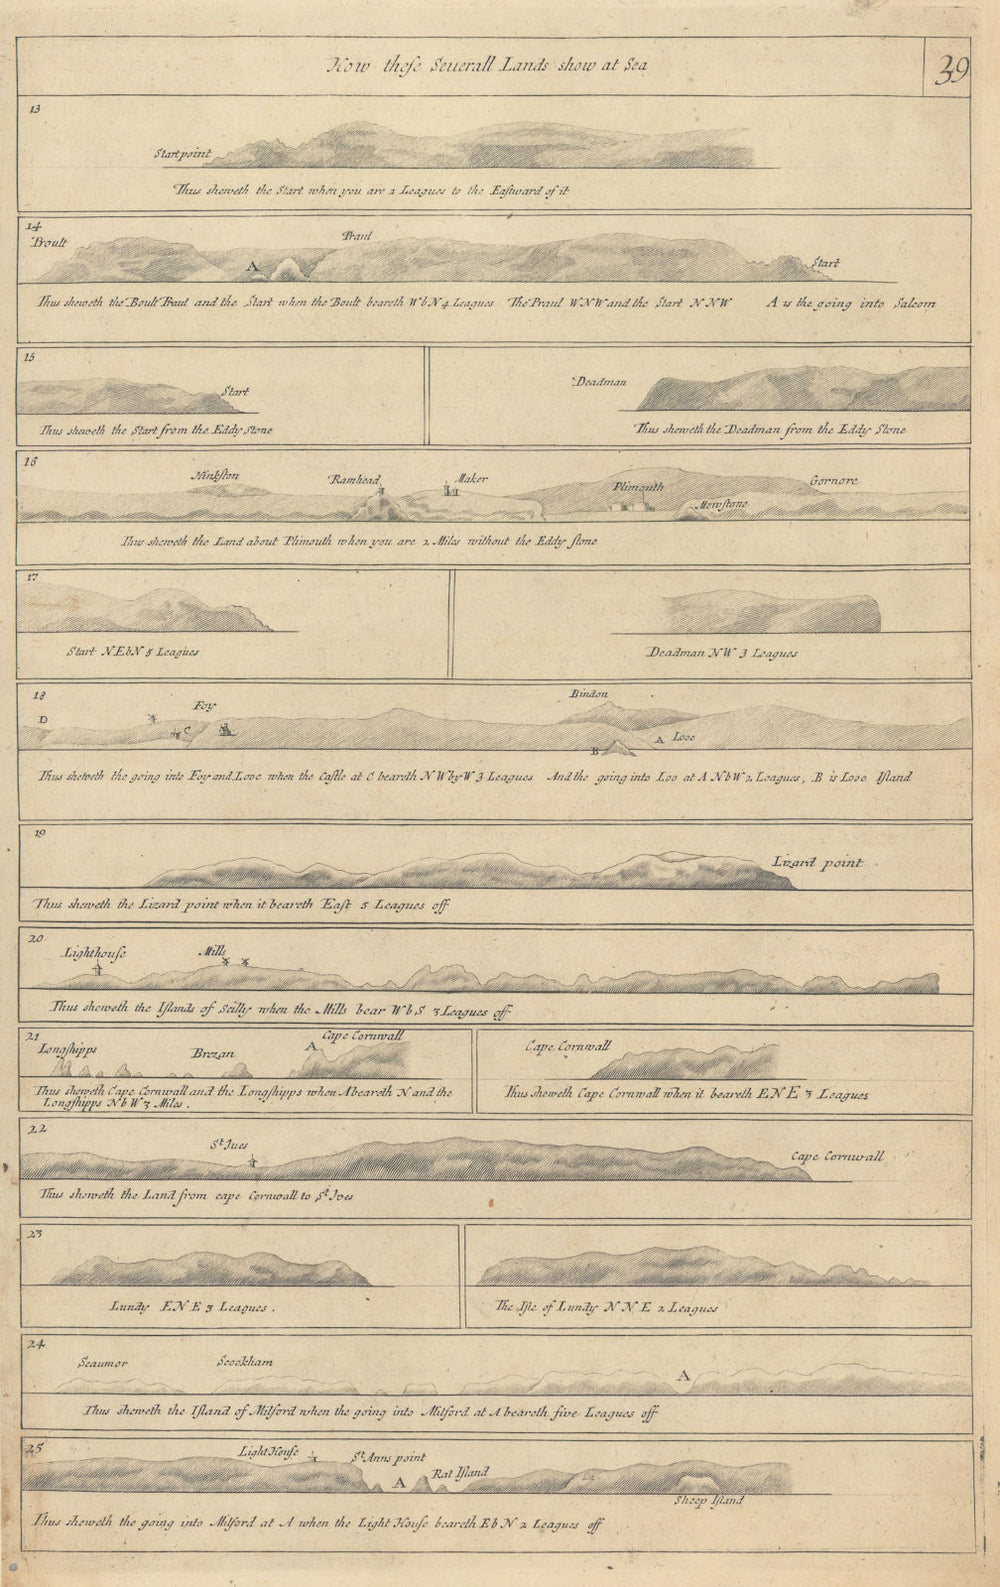 How theſe Seuerall Lands show at Sea
39
13
Startpoint
Thus sheweth the Start when you are 2 Leagues to the Eaſtward of it
14
Boult
Praul
A
Start
Thus sheweth the Boult Praul and the Start when the Boult beareth WbN 4 Leagues The Praul WNW and the Start NNW A is the going into Salcom
15
Start
Thus sheweth the Start from the Eddy Stone
Deadman
Thus sheweth the Deadman from the Eddy Stone
16
Hinkſton
Ramhead
Maker
Plimouth
Mewſtone
Thus sheweth the Land about Plimouth when you are 2 Miles without the Eddy ſtone
17
Start NEbN 5 Leagues
Deadman NW 3 Leagues
18
D
Foy
C
Bindon
B
A
Looe
Thus sheweth the going into Foy and Looe when the Caſtle at C beareth NWbyW 3 Leagues And the going into Loo at A NbW 2 Leagues, B is Looe Iſland
19
Lizard point
Thus sheweth the Lizard point when it beareth Eaſt 5 Leagues off
20
Lighthouſe
Mills
Thus sheweth the Iſlands of Scilly when the Mills bear WbS 3 Leagues off
21
Longſhipps
Brezan
A
Cape Cornwall
Thus sheweth Cape Cornwall and the Longſhipps when A beareth N and the
Longſhipps NbW 3 Miles.
Cape Cornwall
Thus sheweth Cape Cornwall when it beareth ENE 3 Leagues
22
St. Jues
Cape Cornwall
Thus sheweth the Land from cape Cornwall to St. Jves
23
Lundy ENE 3 Leagues.
The Iſle of Lundy NNE 2 Leagues
24
Scaumor
Scockham
A
Thus sheweth the Iſland of Milford when the going into Milford at A beareth five Leagues off
25
Light Houſe
St. Anns point
A
Rat Iſland
Sheep Iſland
Thus sheweth the going into Milford at A when the Light Houſe beareth EbN 2 Leagues off